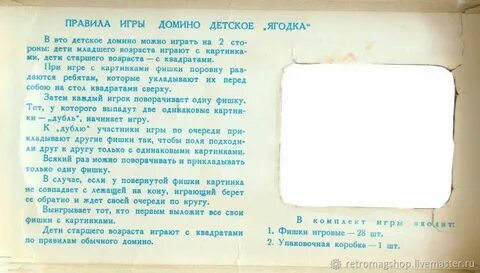 ПРАВИЛА ИГРЫ ДОМИНО ДЕТСКОЕ „ЯГОДКА"
В это детское домино можно играть на 2 сто-
роны: дети младшего возраста играют с картинка-
ми, дети старшего возраста — с квадратами.
При игре с картинками фишки поровну раз-
даются ребятам, которые укладывают их перед
собой на стол квадратами сверху.
Затем каждый игрок поворачивает одну фишку.
Тот, у которого выпадут две одинаковые картин-
ки — „дубль", начинает игру.
К „дублю" участники игры по очереди при-
кладывают другие фишки так, чтобы поля подходи-
ли друг к другу только с одинаковыми картинками.
Всякий раз можно поворачивать и прикладывать
только одну фишку.
В случае, если у повернутой фишки картинка
не совпадает с лежащей на кону, играющий берет
ее обратно и ждет своей очереди по кругу.
Выигрывает тот, кто первым выложит все свои
фишки с картинками.
Дети старшего возраста играют с квадратами
по правилам обычного домино.
В комплект игры входит:
1. Фишки игровые — 28 шт.
2. Упаковочная коробка — 1 шт.
retromagshop.livemaster.ru